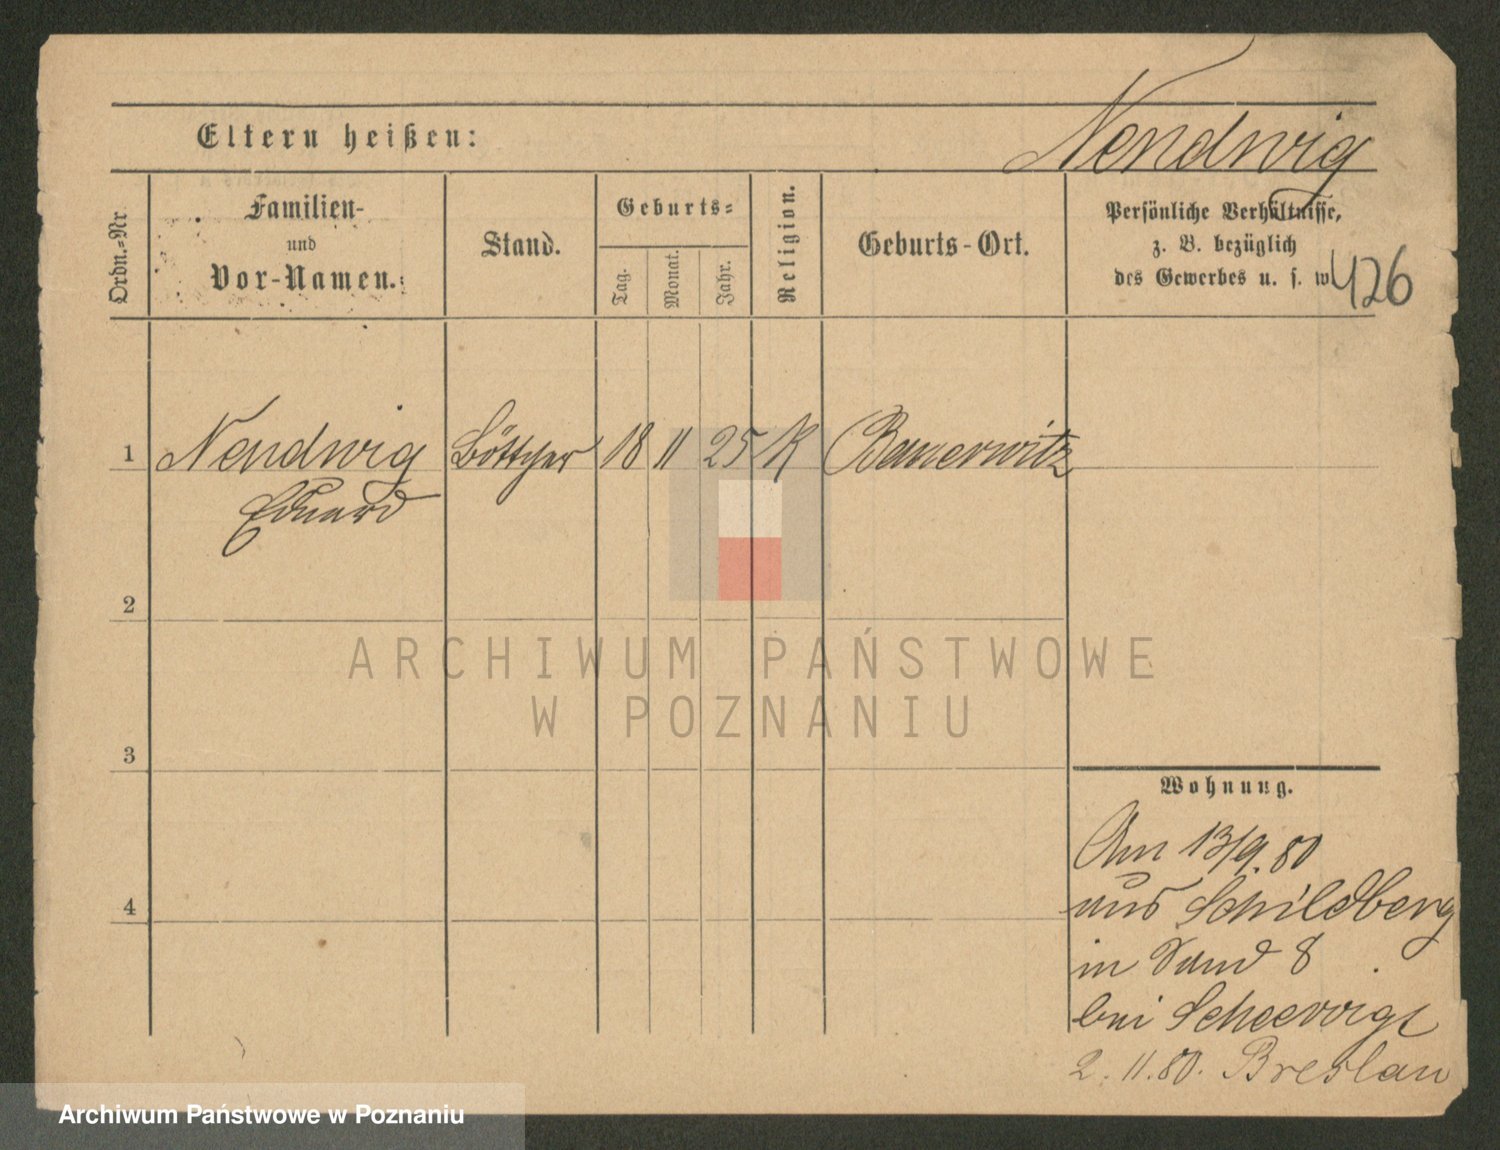 Nendwig
Eltern heißen:
Ordn.=Nr
Familien-
und
Vor-Namen.
Stand.
Geburts=
Tag.
Monat.
Jahr.
Religion.
Geburts-Ort.
Persönliche Verhältnisse,
z. B. bezüglich
des Gewerbes u. s. w
426
1 Nendwig Böttcher 18 11 25 K Bauerwitz
Eduard
2
ARCHIWUM PAŃSTWOWE
W POZNANIU
3
Wohnung.
Am 13/9.80
aus Schildberg
4
in Sand 8
bei
2.11.80. Breslau
Archiwum Państwowe w Poznaniu